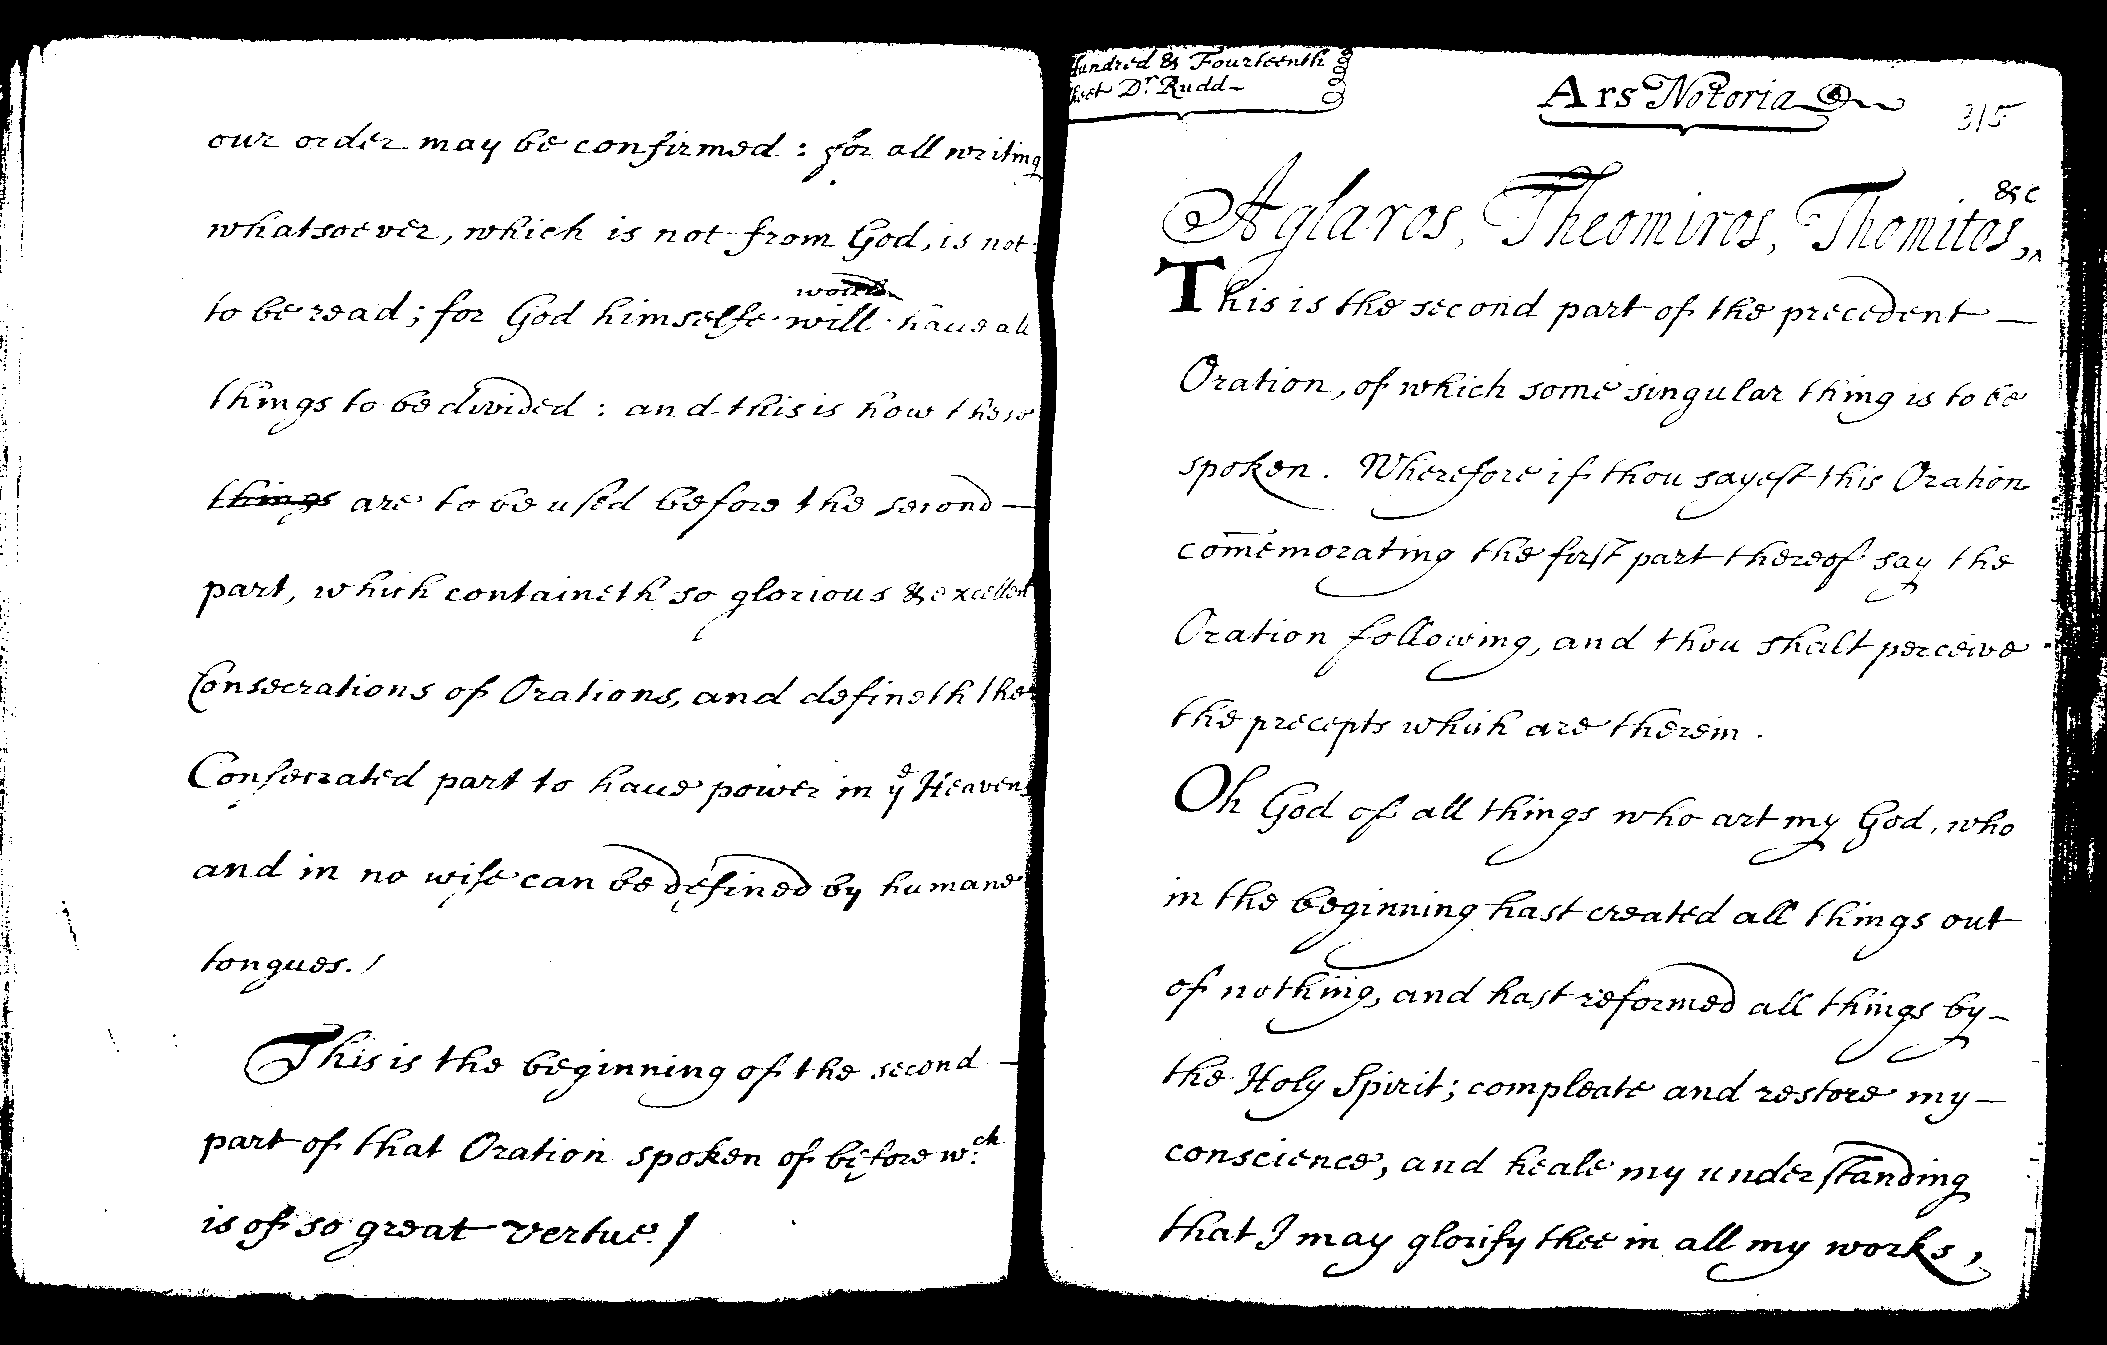 our order may be confirmed : for all writing
whatsoever, which is not from God, is not
to be read ; for God himselfe will have all
things to be divided : and this is how these
things are to be used before the second —
part, which containeth so glorious & excellent
Consecrations of Orations, and defineth the
Consecrated part to have power in yᵉ Heavens
and in no wise can be defined by humane
tongues. /
This is the beginning of the second —
part of that Oration spoken of before wᶜʰ
is of so great vertue. /
Hundred & Fourteenth
Sheet Dʳ Rudd ~
Ars Notoria
315
&c
Aglaros, Theomiros, Thomitos,
This is the second part of the precedent —
Oration, of which some singular thing is to be
spoken. Wherefore if thou sayest this Oration
com̄emorating the first part thereof say the
Oration following, and thou shalt perceive
the precepts which are therein.
Oh God of all things who art my God, who
in the beginning hast created all things out
of nothing, and hast reformed all things by —
the Holy Spirit ; compleate and restore my —
conscience, and heale my understanding
that I may glorify thee in all my works,